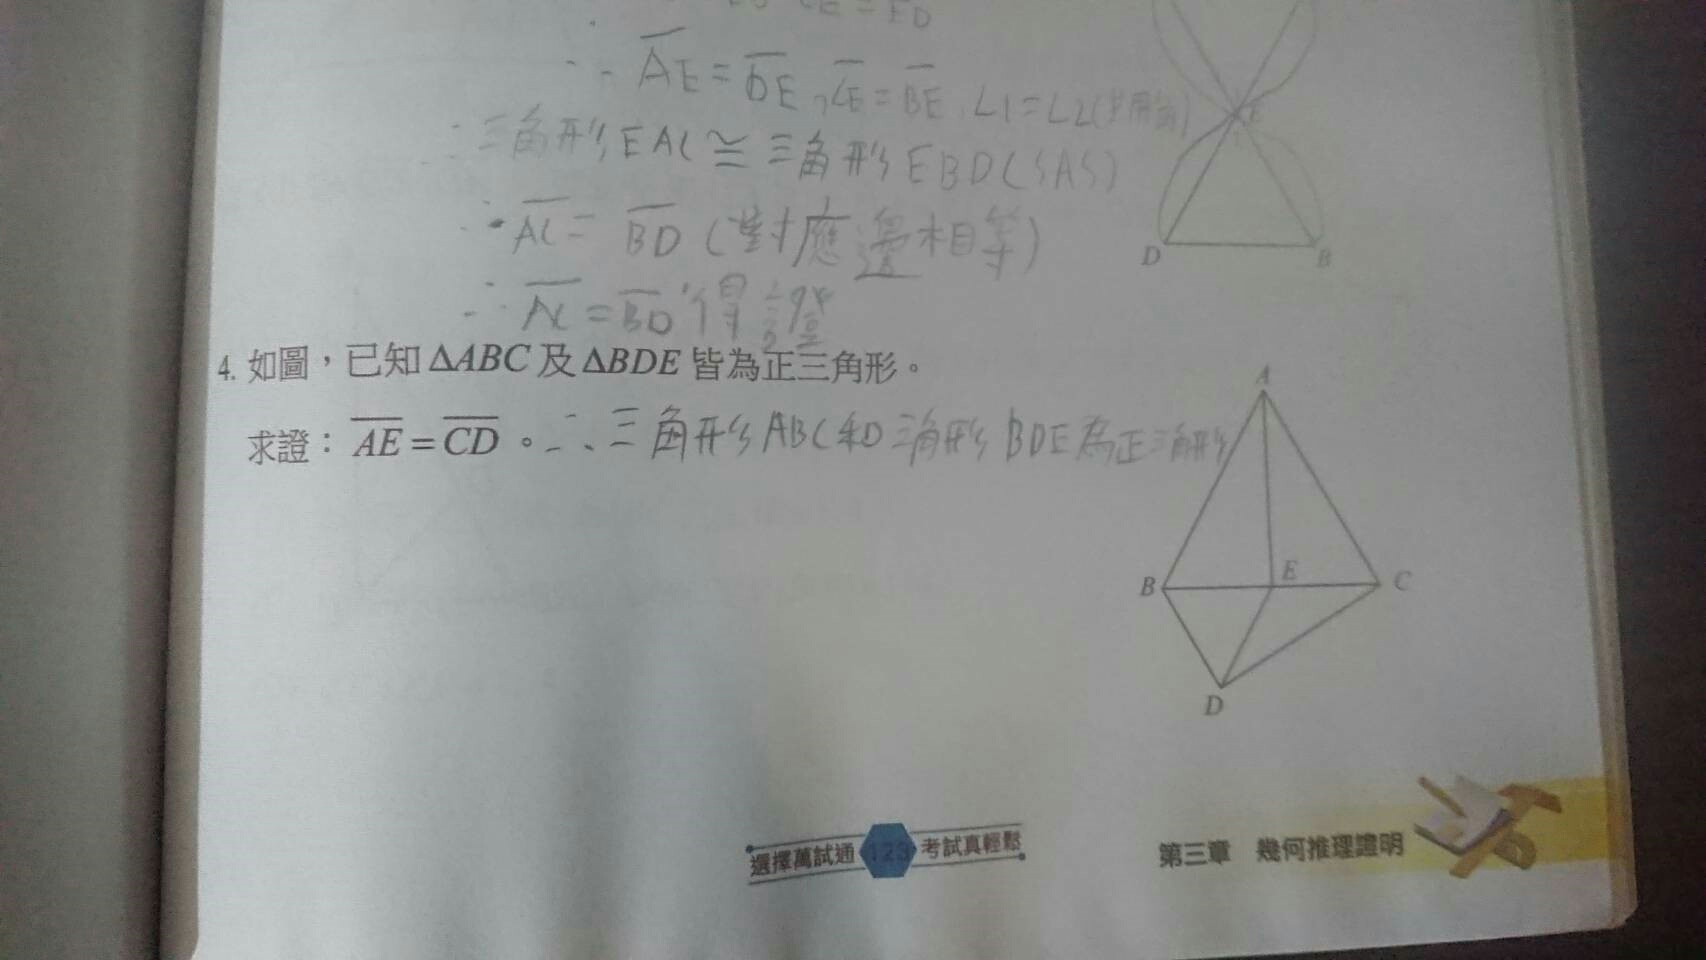 CE = ED
∴ AE = DE, CE = BE, ∠1 = ∠2 (對頂角)
∴ 三角形 EAC ≅ 三角形 EBD (SAS)
∴ AC = BD (對應邊相等)
∴ AC = BD 得證
D B
4. 如圖，已知 ΔABC 及 ΔBDE 皆為正三角形。
求證：AE = CD。∵ 三角形 ABC 和 三角形 BDE 為正三角形
A
B E C
D
選擇萬試通 123 考試真輕鬆
第三章 幾何推理證明